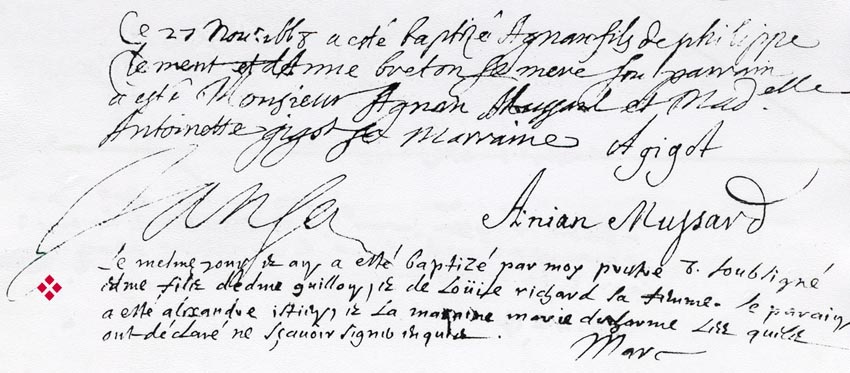 Ce 27 Nov. 1668 a esté baptizé Agnan fils de philippe
Clement et d'Anne breton sa mere son parrain
a esté Monsieur Agnan Mussard et Mad.elle
Antoinette gigot sa Marraine A gigot
Anian Mussard
Le mesme jour et an a esté baptizé par moy soubsigné
edme filz dedme guillon, et de Loüise richard sa femme. le parain
a esté alexandre et La maraine marie lesquelz
ont déclaré ne sçavoir signer
Marc